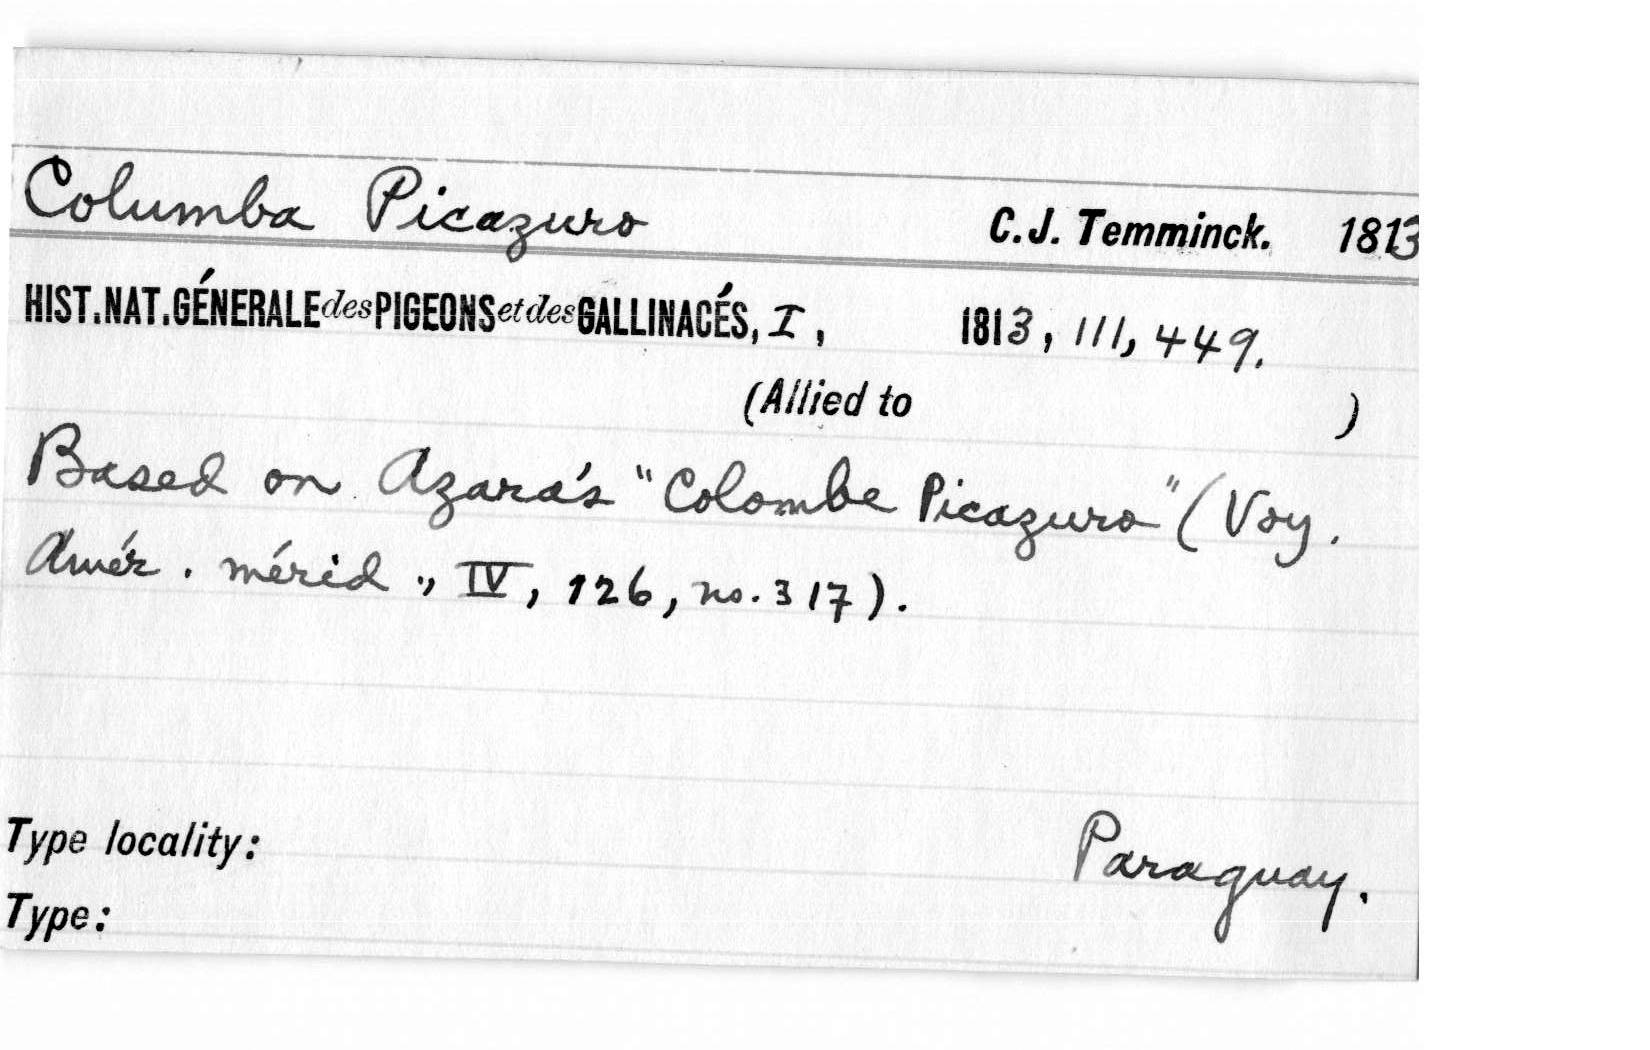 Columba Picazuro C.J. Temminck. 1813
HIST.NAT.GÉNERALE des PIGEONS et des GALLINACÉS, I, 1813, 111, 449.
(Allied to )
Based on Azara's "Colombe Picazuro" (Voy.
Amér. mérid., IV, 126, no. 317).
Type locality: Paraguay.
Type: